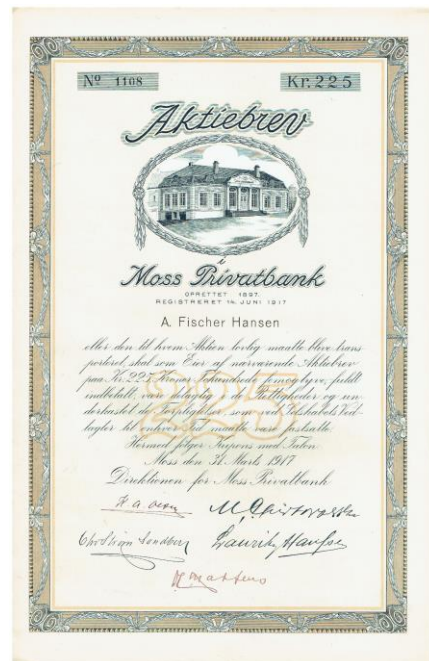 Nº 1108 Kr. 225
Aktiebrev
i
Moss Privatbank
OPRETTET 1897.
REGISTRERET 14. JUNI 1917
A. Fischer Hansen
eller den til hvem Aktien lovlig maatte blive trans
porteret, skal som Eier af nærværende Aktiebrev
paa Kr. 225 Kroner tohundrede femogtyve, fuldt
indbetalt, være delagtig i de Rettigheder og un
derkastet de Forpligtelser, som ved Selskabets Ved
tægter til enhver Tid maatte være fastsatte.
Hermed følger Kupons med Talon.
Moss den 31. Marts 1917
Direktionen for Moss Privatbank
225
Lauritz